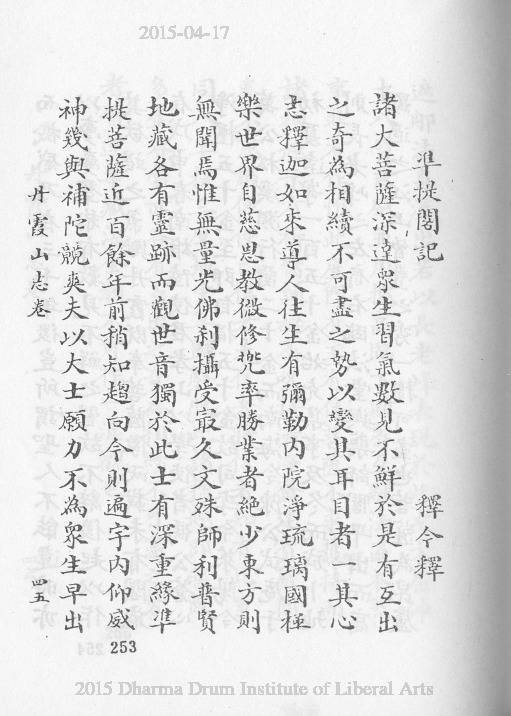 2015-04-17
準提閣記　釋今釋
諸大菩薩深達眾生習氣數見不鮮於是有互出
之奇為相續不可盡之勢以變其耳目者一其心
志釋迦如來導人往生有彌勒內院淨琉璃國極
樂世界自慈恩教微修兜率勝業者絶少東方則
無聞焉惟無量光佛剎攝受最久文殊師利普賢
地藏各有靈跡而觀世音獨於此土有深重緣準
提菩薩近百餘年前稍知趨向今則遍宇內仰威
神幾與補陀競爽夫以大士願力不為眾生早出
丹霞山志卷　四五
253
2015 Dharma Drum Institute of Liberal Arts